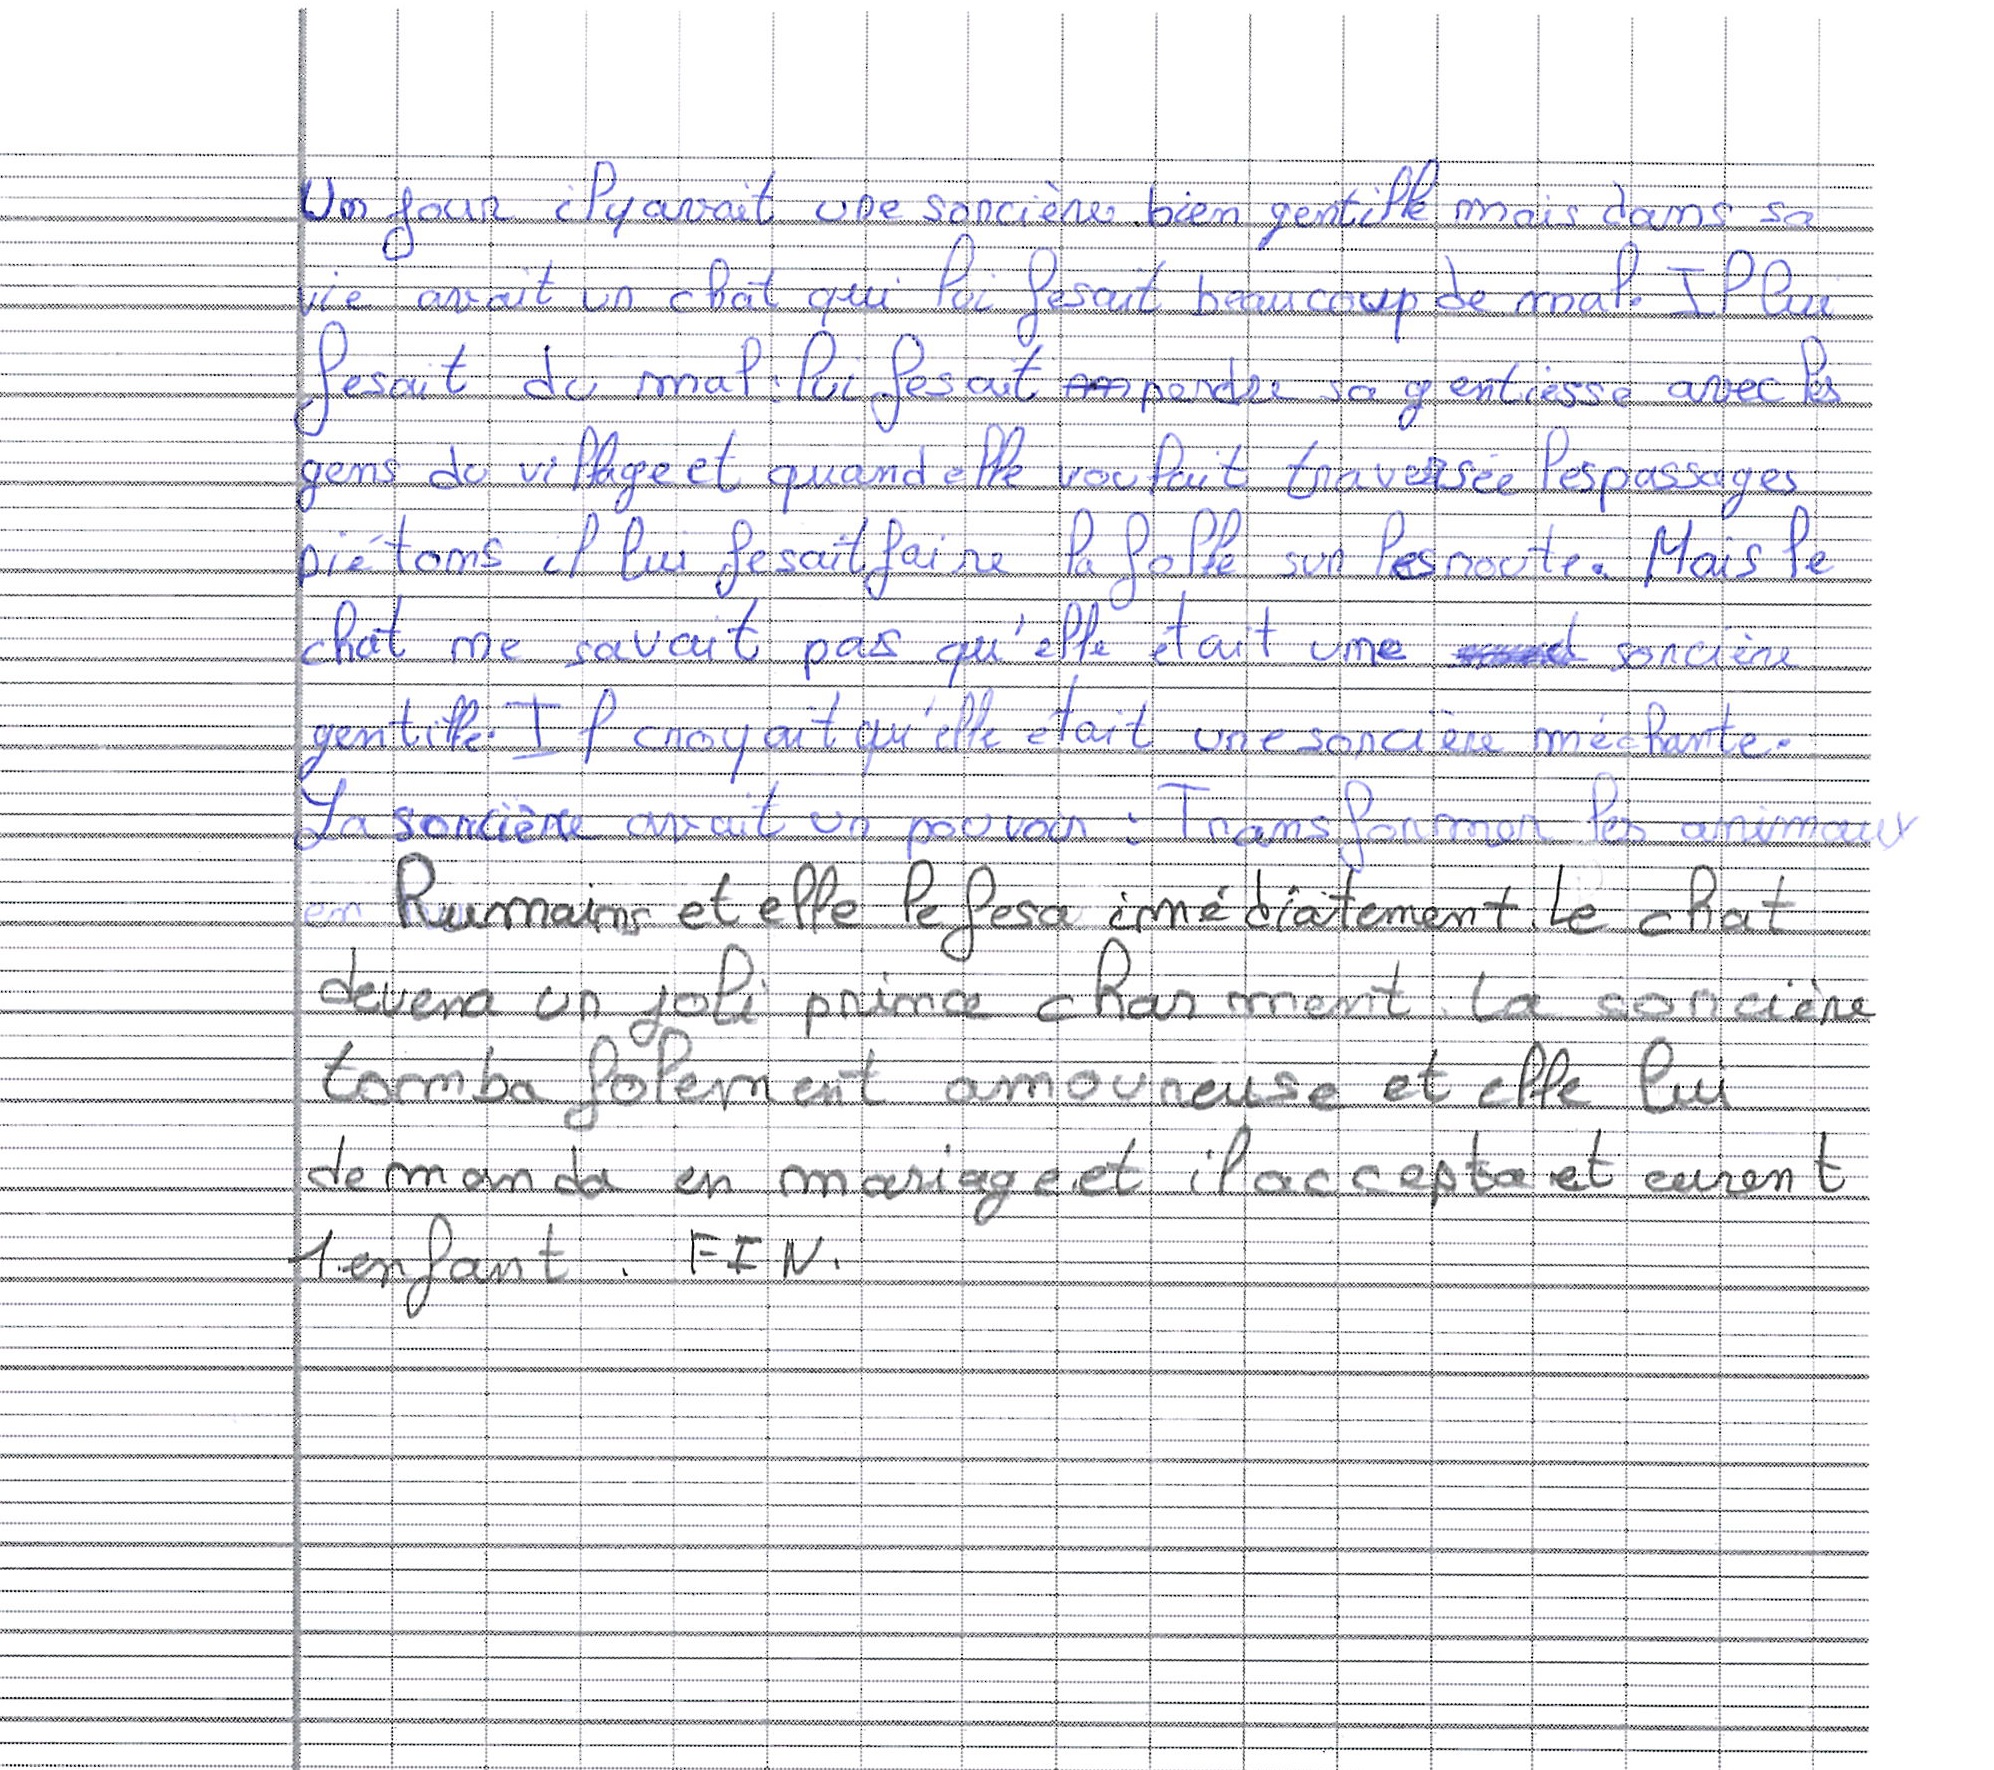 Un jour il y avait une sorcière bien gentille mais dans sa
vie avait un chat qui lui fesait beaucoup de mal. Il lui
fesait du mal : lui fesait perdre sa gentiesse avec les
gens du village et quand elle voulait traversée les passages
piétons il lui fesait faire la folle sur les route. Mais le
chat ne savait pas qu'elle était une sorcière
gentille. Il croyait qu'elle était une sorcière méchante.
La sorcière avait un pouvoir : Transformer les animaux
en humains et elle le fesa imédiatement. Le chat
devena un joli prince charment. La sorcière
tomba folement amoureuse et elle lui
demanda en mariage et il accepta et eurent
1 enfant. FIN.